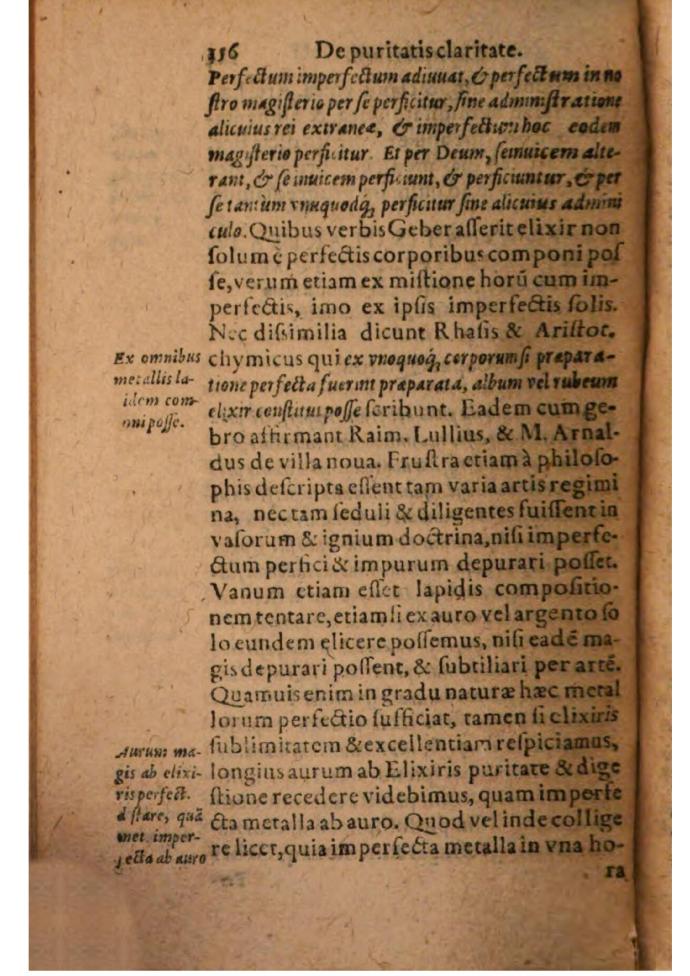 356 De puritatis claritate.
Perfectum imperfectum adiuuat, & perfectum in no
ſtro magiſterio per ſe perficitur, ſine adminiſtratione
alicuius rei extraneæ, & imperfectum hoc eodem
magiſterio perficitur. Et per Deum, ſeinuicem alte-
rant, & ſe inuicem perficiunt, & perficiuntur, & per
ſe tantùm vnuquodq́, perficitur ſine alicuius admini
culo. Quibus verbis Geber aſſerit elixir non
ſolum è perfectis corporibus componi poſ
ſe, verum etiam ex miſtione horũ cum im-
perfectis, imo ex ipſis imperfectis ſolis.
Nec diſsimilia dicunt Rhaſis & Ariſtot.
chymicus qui ex vnoquoq́, corporum ſi præpara-
tione perfecta fuerint præparata, album vel rubeum
elixir conſtitui poſſe ſcribunt. Eadem cum ge-
bro affirmant Raim. Lullius, & M. Arnal-
dus de villa noua. Fruſtra etiam à philoſo-
phis deſcripta eſſent tam varia artis regimi
na, nec tam ſeduli & diligentes fuiſſent in
vaſorum & ignium doctrina, niſi imperfe-
ctum perfici & impurum depurari poſſet.
Vanum etiam eſſet lapidis compoſitio-
nem tentare, etiamſi ex auro vel argento ſo
lo eundem elicere poſſemus, niſi eadẽ ma-
gis depurari poſſent, & ſubtiliari per artẽ.
Quamuis enim in gradu naturæ hæc metal
lorum perfectio ſufficiat, tamen ſi elixiris
ſublimitatem & excellentiam reſpiciamus,
longius aurum ab Elixiris puritate & dige
ſtione recedere videbimus, quam imperfe
cta metalla ab auro. Quod vel inde collige
re licet, quia imperfecta metalla in vna ho-
ra
Ex omnibus
metallis la-
idem com-
oni poſſe.
Aurum ma-
gis ab elixi-
ris perfect.
diſtare, quã
met. imper-
fecta ab auro